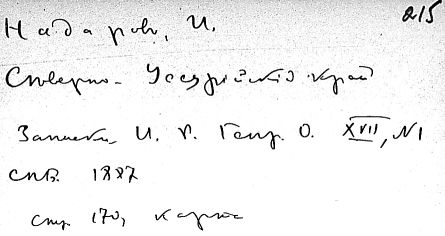 215
Надаров, И.
Сѣверно-Уссурійскій край
Записки И. Р. Геогр. О. XVII, N1
СПБ. 1887
стр. 170, карта